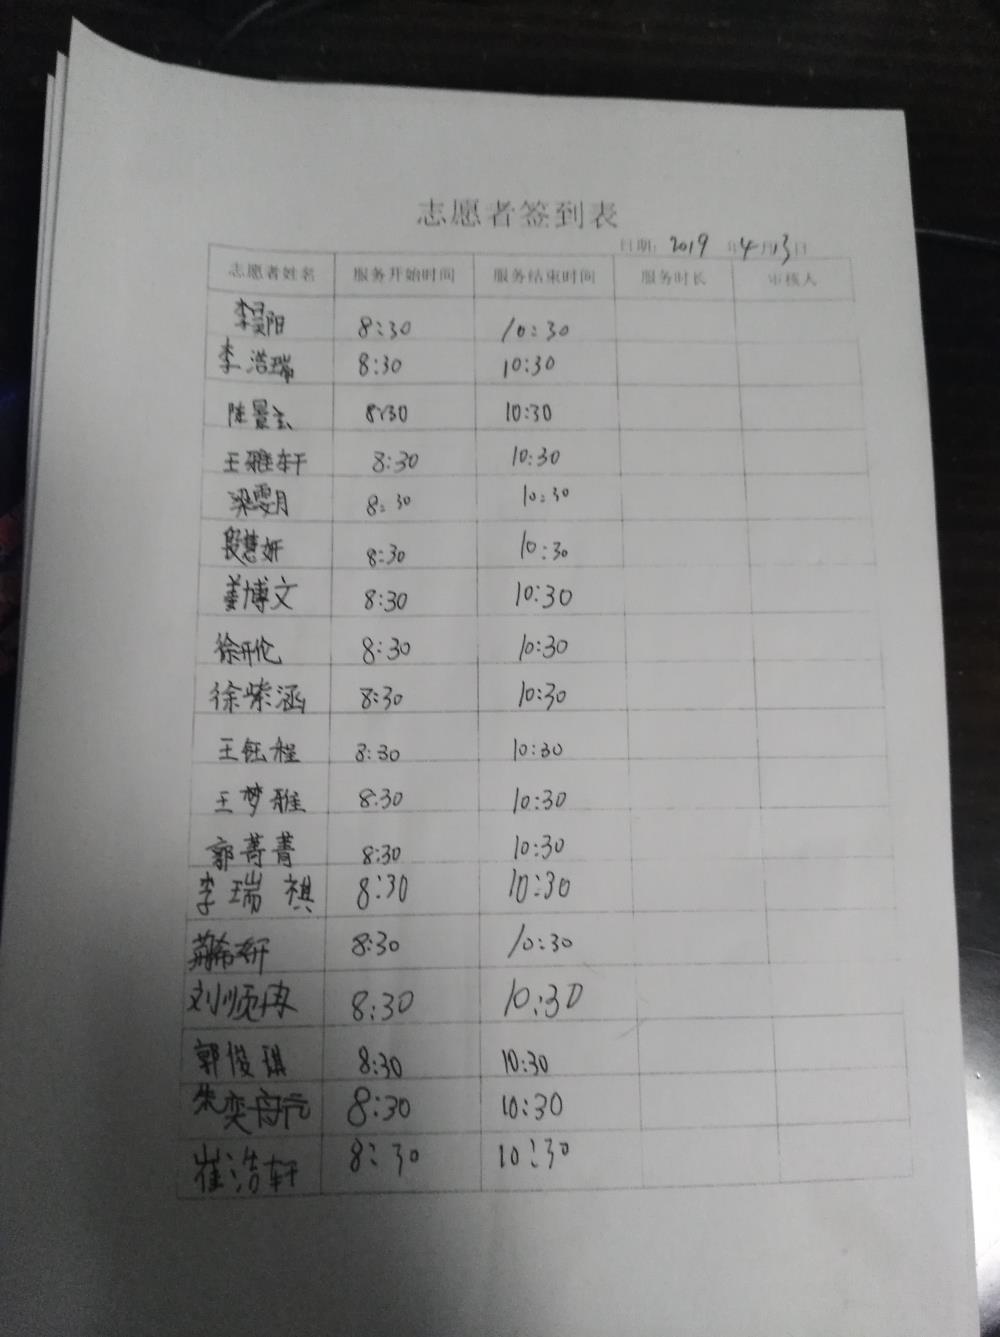 志愿者签到表
日期：2019 年4月13日
志愿者姓名 服务开始时间 服务结束时间 服务时长 审核人
李昊阳 8:30 10:30
李浩瑞 8:30 10:30
陈景云 8:30 10:30
王雅轩 8:30 10:30
梁雯月 8:30 10:30
段慧妍 8:30 10:30
姜博文 8:30 10:30
徐开伦 8:30 10:30
徐紫涵 8:30 10:30
王钰程 8:30 10:30
王梦雅 8:30 10:30
郭菁菁 8:30 10:30
李瑞祺 8:30 10:30
希研 8:30 10:30
刘顺冉 8:30 10:30
郭俊琪 8:30 10:30
朱奕 8:30 10:30
崔浩轩 8:30 10:30